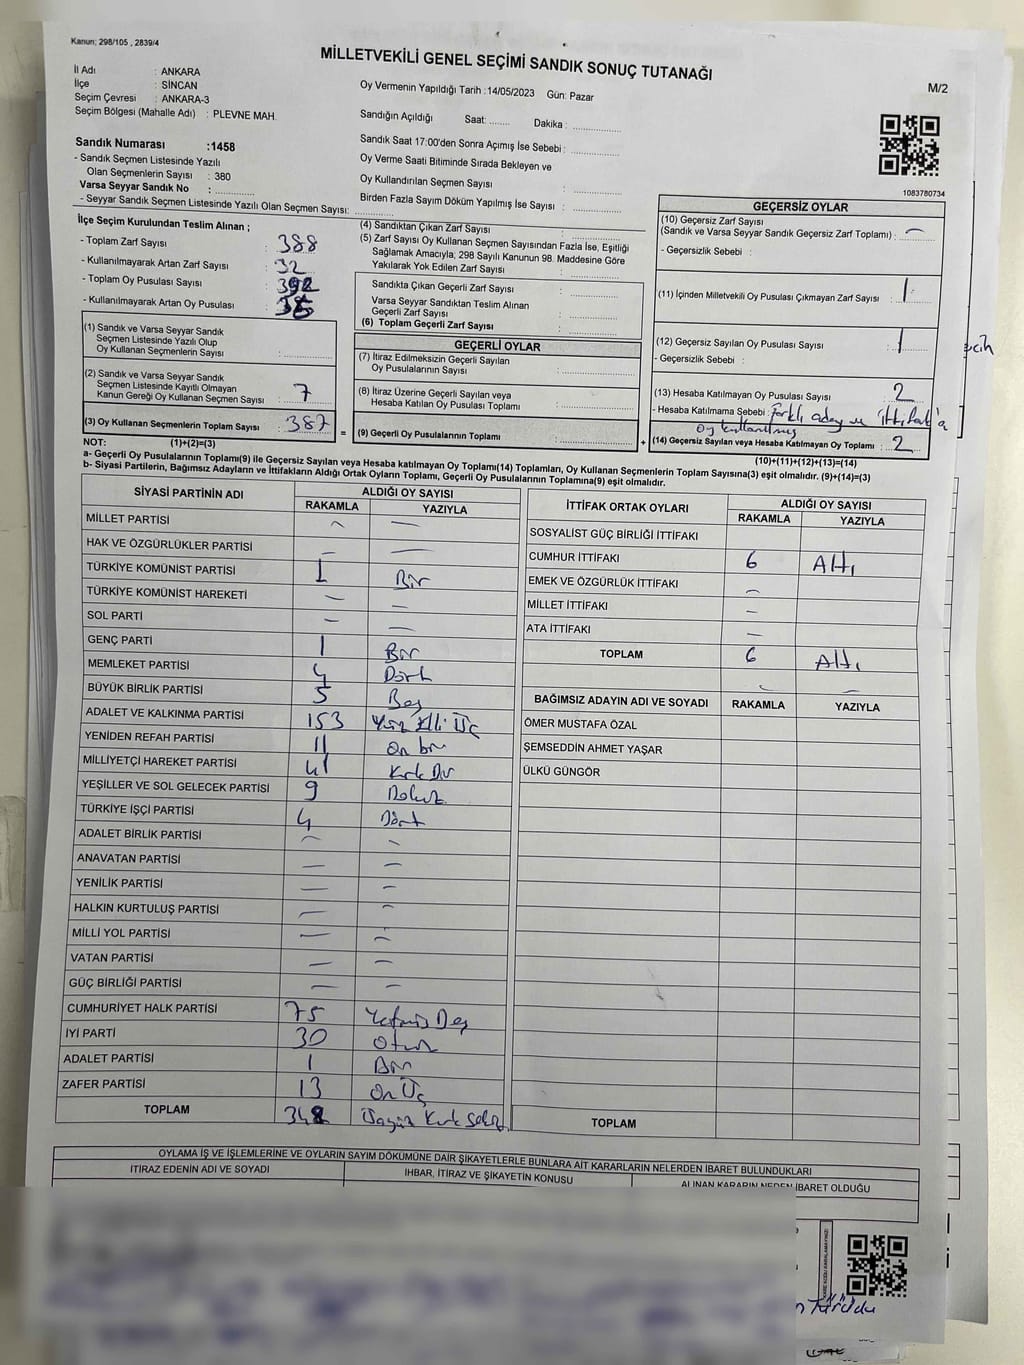 Kanun; 298/105 , 2839/4
MİLLETVEKİLİ GENEL SEÇİMİ SANDIK SONUÇ TUTANAĞI
M/2
İl Adı : ANKARA
İlçe : SİNCAN
Seçim Çevresi : ANKARA-3
Seçim Bölgesi (Mahalle Adı) : PLEVNE MAH.
Sandık Numarası :1458
- Sandık Seçmen Listesinde Yazılı
Olan Seçmenlerin Sayısı : 380
Varsa Seyyar Sandık No :
- Seyyar Sandık Seçmen Listesinde Yazılı Olan Seçmen Sayısı:
Oy Vermenin Yapıldığı Tarih :14/05/2023 Gün: Pazar
Sandığın Açıldığı Saat: ........ Dakika :
Sandık Saat 17:00'den Sonra Açımış İse Sebebi :
Oy Verme Saati Bitiminde Sırada Bekleyen ve
Oy Kullandırılan Seçmen Sayısı :
Birden Fazla Sayım Döküm Yapılmış İse Sayısı :
1083780734
İlçe Seçim Kurulundan Teslim Alınan ;
- Toplam Zarf Sayısı : 388
- Kullanılmayarak Artan Zarf Sayısı : 32
- Toplam Oy Pusulası Sayısı : 392
- Kullanılmayarak Artan Oy Pusulası :
(1) Sandık ve Varsa Seyyar Sandık
Seçmen Listesinde Yazılı Olup
Oy Kullanan Seçmenlerin Sayısı :
(2) Sandık ve Varsa Seyyar Sandık
Seçmen Listesinde Kayıtlı Olmayan
Kanun Gereği Oy Kullanan Seçmen Sayısı : 7
(3) Oy Kullanan Seçmenlerin Toplam Sayısı : 387
(4) Sandıktan Çıkan Zarf Sayısı :
(5) Zarf Sayısı Oy Kullanan Seçmen Sayısından Fazla İse, Eşitliği
Sağlamak Amacıyla; 298 Sayılı Kanunun 98. Maddesine Göre
Yakılarak Yok Edilen Zarf Sayısı :
Sandıkta Çıkan Geçerli Zarf Sayısı :
Varsa Seyyar Sandıktan Teslim Alınan
Geçerli Zarf Sayısı :
(6) Toplam Geçerli Zarf Sayısı :
GEÇERLİ OYLAR
(7) İtiraz Edilmeksizin Geçerli Sayılan
Oy Pusulalarının Sayısı :
(8) İtiraz Üzerine Geçerli Sayılan veya
Hesaba Katılan Oy Pusulası Toplamı :
= (9) Geçerli Oy Pusulalarının Toplamı : +
GEÇERSİZ OYLAR
(10) Geçersiz Zarf Sayısı
(Sandık ve Varsa Seyyar Sandık Geçersiz Zarf Toplamı) : —
- Geçersizlik Sebebi :
(11) İçinden Milletvekili Oy Pusulası Çıkmayan Zarf Sayısı : 1
(12) Geçersiz Sayılan Oy Pusulası Sayısı : 1
- Geçersizlik Sebebi :
(13) Hesaba Katılmayan Oy Pusulası Sayısı : 2
- Hesaba Katılmama Sebebi : farklı aday ve ittifak'a
oy kullanılmış
(14) Geçersiz Sayılan veya Hesaba Katılmayan Oy Toplamı : 2
NOT: (1)+(2)=(3)
(10)+(11)+(12)+(13)=(14)
a- Geçerli Oy Pusulalarının Toplamı(9) ile Geçersiz Sayılan veya Hesaba katılmayan Oy Toplamı(14) Toplamları, Oy Kullanan Seçmenlerin Toplam Sayısına(3) eşit olmalıdır. (9)+(14)=(3)
b- Siyasi Partilerin, Bağımsız Adayların ve İttifakların Aldığı Ortak Oyların Toplamı, Geçerli Oy Pusulalarının Toplamına(9) eşit olmalıdır.
SİYASİ PARTİNİN ADI ALDIĞI OY SAYISI
RAKAMLA YAZIYLA
MİLLET PARTİSİ — —
HAK VE ÖZGÜRLÜKLER PARTİSİ — —
TÜRKİYE KOMÜNİST PARTİSİ 1 Bir
TÜRKİYE KOMÜNİST HAREKETİ — —
SOL PARTİ — —
GENÇ PARTİ 1 Bir
MEMLEKET PARTİSİ 4 Dört
BÜYÜK BİRLİK PARTİSİ 5 Beş
ADALET VE KALKINMA PARTİSİ 153 Yüz Elli Üç
YENİDEN REFAH PARTİSİ 11 On bir
MİLLİYETÇİ HAREKET PARTİSİ 41 Kırk Bir
YEŞİLLER VE SOL GELECEK PARTİSİ 9 Dokuz
TÜRKİYE İŞÇİ PARTİSİ 4 Dört
ADALET BİRLİK PARTİSİ — —
ANAVATAN PARTİSİ — —
YENİLİK PARTİSİ — —
HALKIN KURTULUŞ PARTİSİ — —
MİLLİ YOL PARTİSİ — —
VATAN PARTİSİ — —
GÜÇ BİRLİĞİ PARTİSİ — —
CUMHURİYET HALK PARTİSİ 75 Yetmiş Beş
İYİ PARTİ 30 Otuz
ADALET PARTİSİ 1 Bir
ZAFER PARTİSİ 13 On Üç
TOPLAM 348 Üçyüz Kırk Sekiz
İTTİFAK ORTAK OYLARI ALDIĞI OY SAYISI
RAKAMLA YAZIYLA
SOSYALİST GÜÇ BİRLİĞİ İTTİFAKI
CUMHUR İTTİFAKI 6 Altı
EMEK VE ÖZGÜRLÜK İTTİFAKI —
MİLLET İTTİFAKI —
ATA İTTİFAKI —
TOPLAM 6 Altı
BAĞIMSIZ ADAYIN ADI VE SOYADI RAKAMLA YAZIYLA
ÖMER MUSTAFA ÖZAL
ŞEMSEDDİN AHMET YAŞAR
ÜLKÜ GÜNGÖR
TOPLAM
OYLAMA İŞ VE İŞLEMLERİNE VE OYLARIN SAYIM DÖKÜMÜNE DAİR ŞİKAYETLERLE BUNLARA AİT KARARLARIN NELERDEN İBARET BULUNDUKLARI
İTİRAZ EDENİN ADI VE SOYADI İHBAR, İTİRAZ VE ŞİKAYETİN KONUSU ALINAN KARARIN NEDEN İBARET OLDUĞU